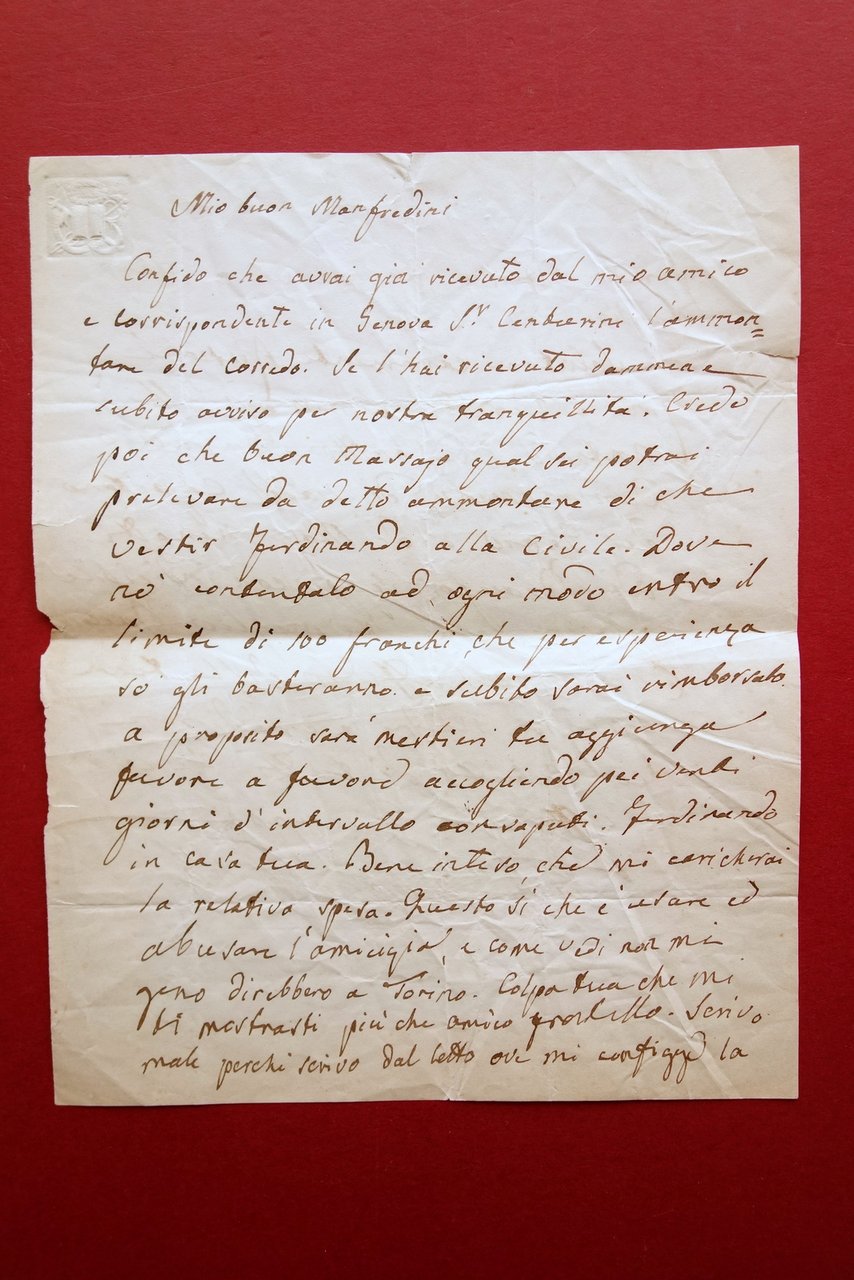 Mio buon Manfredini
Confido che avrai già ricevuto dal mio amico
e corrispondente in Genova Sr Centurini l'ammon=
tare del corredo. Se l'hai ricevuto dammene
subito avviso per nostra tranquillità. Credo
poi che buon Massajo qual sei potrai
prelevare da detto ammontare di che
vestir Ferdinando alla Civile. Dove
nò contentalo ad ogni modo entro il
limite di 100 franchi, che per esperienza
sò gli basteranno e subito sarai rimborsato.
a proposito sarà mestieri tu aggiunga
favore a favore accogliendo pei venti
giorni d'intervallo consaputi. Ferdinando
in casa tua. Bene inteso, che mi caricherai
la relativa spesa. Questo sì che è usare ed
abusare l'amicizia, e come vedi non mi
geno direbbero a Torino. Colpa tua che mi
ti mostrasti più che amico fratello. Scrivo
male perchè scrivo dal letto ove mi configge la